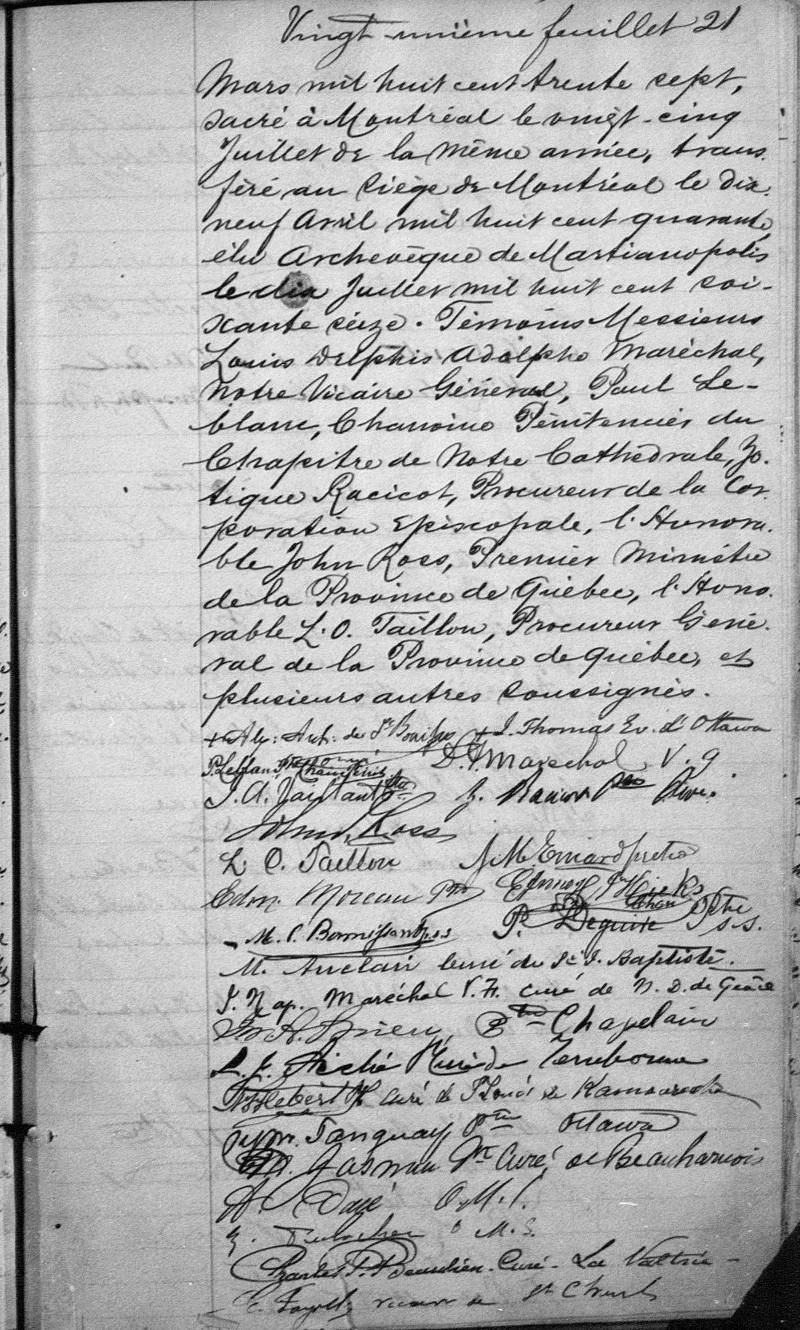 Vingt-unième feuillet 21
Mars mil huit cent trente sept,
sacré à Montréal le vingt-cinq
Juillet de la même année, trans
féré au Siège de Montréal le dix
neuf Avril mil huit cent quarante,
élu Archevêque de Martianopolis
le dix Juillet mil huit cent soi-
xante seize. Témoins Messieurs
Louis Delphis Adolphe Maréchal,
notre Vicaire Général, Paul Le-
blanc, Chanoine Pénitencier du
Chapitre de Notre Cathédrale, Zo.
tique Racicot, Procureur de la Cor.
poration Episcopale, l'Honora.
ble John Ross, Premier Ministre
de la Province de Québec, l'Hono.
rable L. O. Taillon, Procureur Géné.
ral de la Province de Québec, et
plusieurs autres soussignés.
+ Alex: Arch. de St Boniface + J. Thomas Ev. d'Ottawa
P. Leblanc D. A. Maréchal V. G
J. A. Vaillant Ptre Z. Racicot Ptre
John J. Ross
L. O. Taillon J. M. Emard ptre
Edm. Moreau Ptre Hicks
M. C. Bonnissant p.s.s P. Deguire Ptre S.S.
M. Auclair curé de St. J. Baptiste.
J. Nap. Maréchal V. F. curé de N. D. de Grâce
Ptre Chapelain
L. J. Piché Curé de Terrebonne
Hebert curé de St Louis de Kamouraska
Cyp. Tanguay Ptre Ottawa
Ptre Curé, de Beauharnois
O.M.I.
O M. I.
Charles Beaudien. Curé. La Valtrie
vicaire de St